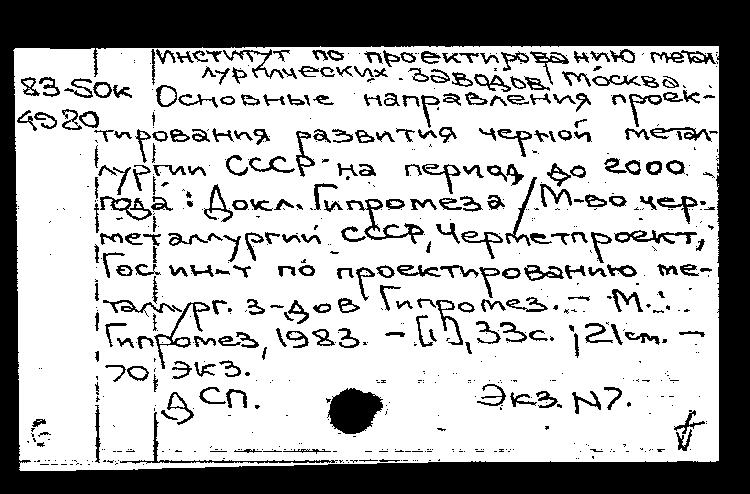 Институт по проектированию метал
лургических заводов, Москва.
83-50к
4920
Основные направления проек-
тирования развития черной метал-
лургии СССР на период до 2000
года : Докл. Гипромеза / М-во чер.
металлургии СССР, Черметпроект,
Гос. ин-т по проектированию ме-
таллург. з-дов Гипромез. — М. :
Гипромез, 1983. — [1], 33с. ; 21см. —
70 экз.
ДСП. Экз. N7.